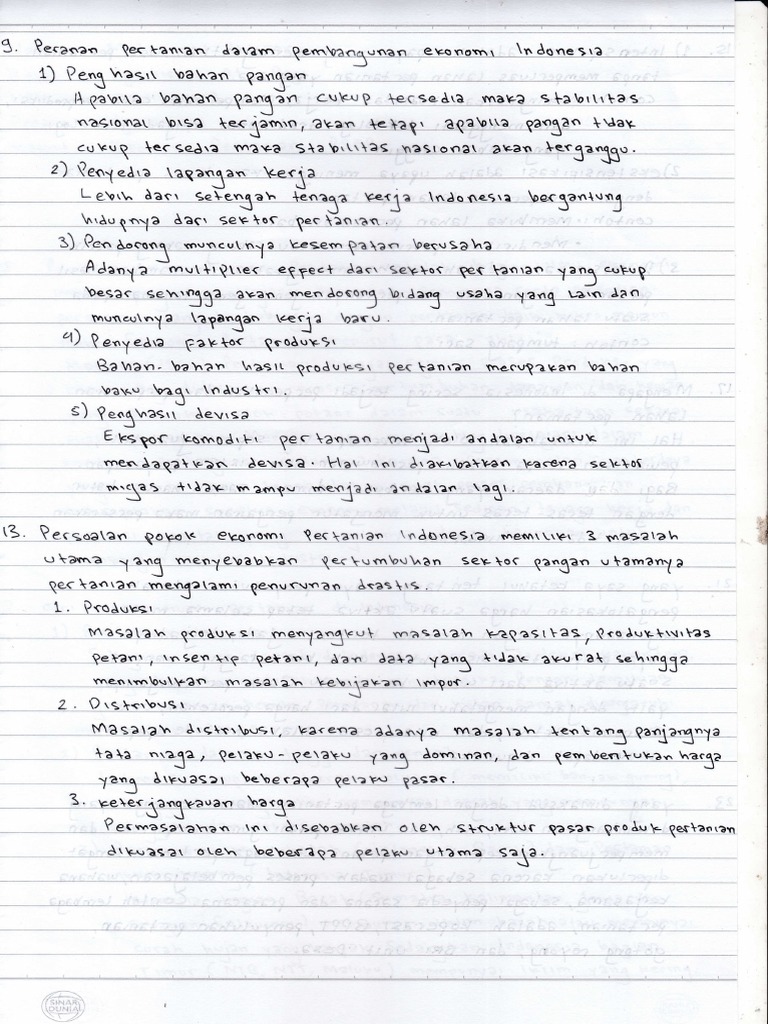 9. Peranan pertanian dalam pembangunan ekonomi Indonesia
1) Penghasil bahan pangan
Apabila bahan pangan cukup tersedia maka stabilitas
nasional bisa terjamin, akan tetapi apabila pangan tidak
cukup tersedia maka stabilitas nasional akan terganggu.
2) Penyedia lapangan kerja
Lebih dari setengah tenaga kerja Indonesia bergantung
hidupnya dari sektor pertanian.
3) Pendorong munculnya kesempatan berusaha
Adanya multiplier effect dari sektor pertanian yang cukup
besar sehingga akan mendorong bidang usaha yang lain dan
munculnya lapangan kerja baru.
4) Penyedia faktor produksi
Bahan-bahan hasil produksi pertanian merupakan bahan
baku bagi industri.
5) Penghasil devisa
Ekspor komoditi pertanian menjadi andalan untuk
mendapatkan devisa. Hal ini diakibatkan karena sektor
migas tidak mampu menjadi andalan lagi.
13. Persoalan pokok ekonomi Pertanian Indonesia memiliki 3 masalah
utama yang menyebabkan pertumbuhan sektor pangan utamanya
pertanian mengalami penurunan drastis.
1. Produksi
Masalah produksi menyangkut masalah kapasitas, produktivitas
petani, insentip petani, dan data yang tidak akurat sehingga
menimbulkan masalah kebijakan impor.
2. Distribusi
Masalah distribusi, karena adanya masalah tentang panjangnya
tata niaga, pelaku-pelaku yang dominan, dan pembentukan harga
yang dikuasai beberapa pelaku pasar.
3. Keterjangkauan harga
Permasalahan ini disebabkan oleh struktur pasar produk pertanian
dikuasai oleh beberapa pelaku utama saja.
SINAR
DUNIA